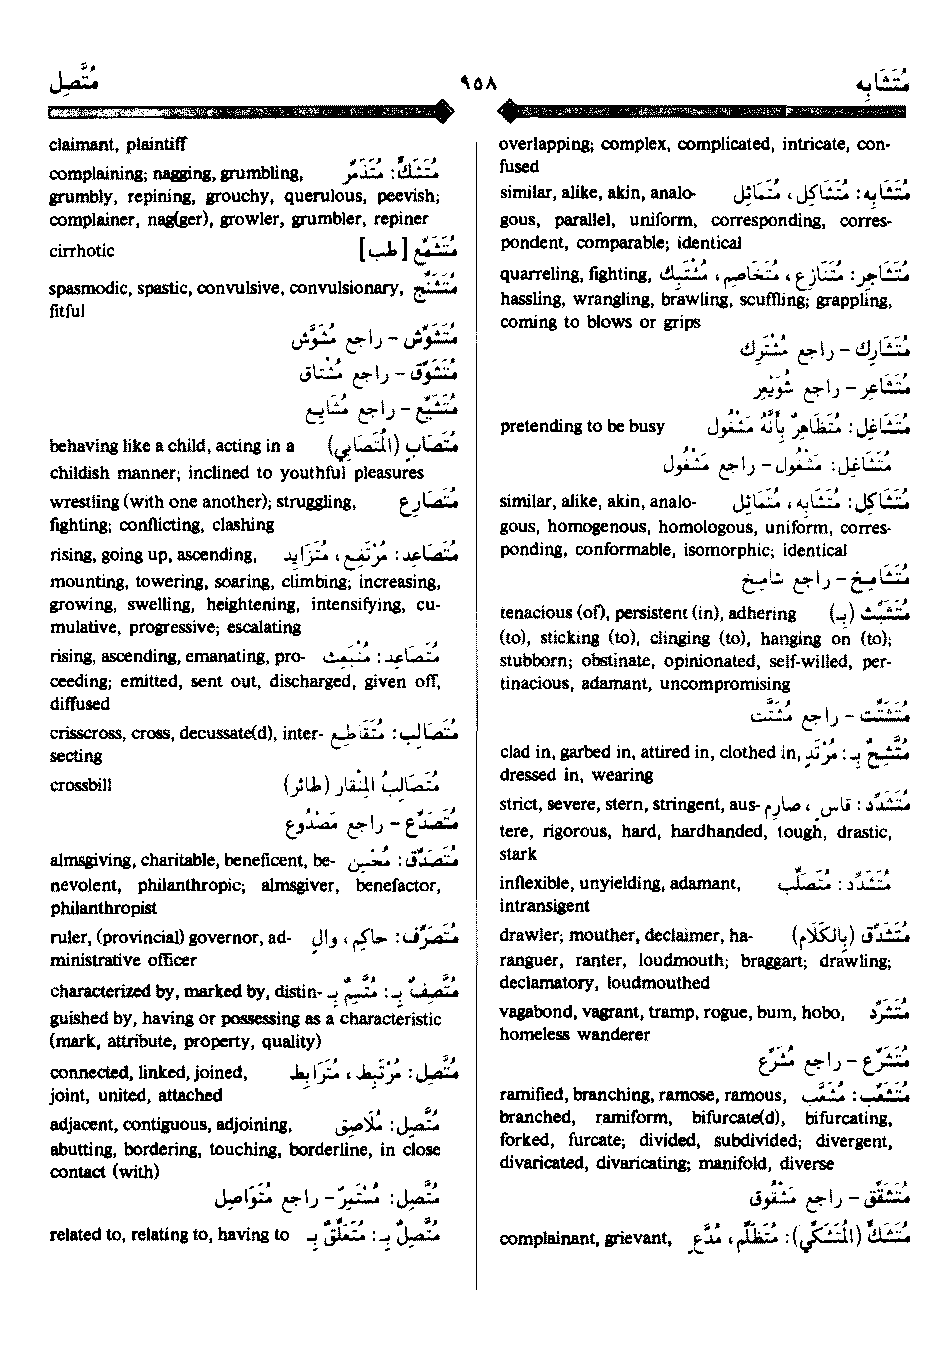 مُتَشَابِه ٩٥٨ مُتَّصِل
overlapping; complex, complicated, intricate, con-
fused
مُتَشَابِه: مُتَشَاكِل، مُتَمَاثِل similar, alike, akin, analo-
gous, parallel, uniform, corresponding, corres-
pondent, comparable; identical
مُتَشَاجِر: مُتَنَازِع، مُتَخَاصِم، مُشْتَبِك quarreling, fighting,
hassling, wrangling, brawling, scuffling; grappling,
coming to blows or grips
مُتَشَارِك - راجع مُشْتَرِك
مُتَشَاعِر - راجع شُوَيْعِر
مُتَشَاغِل: مُتَظَاهِرٌ بِأَنَّهُ مَشْغُول pretending to be busy
مُتَشَاغِل: مَشْغُول - راجع مَشْغُول
مُتَشَاكِل: مُتَشَابِه، مُتَمَاثِل similar, alike, akin, analo-
gous, homogenous, homologous, uniform, corres-
ponding, conformable, isomorphic; identical
مُتَشَامِخ - راجع شامِخ
مُتَشَبِّث (بِـ) tenacious (of), persistent (in), adhering
(to), sticking (to), clinging (to), hanging on (to);
stubborn; obstinate, opinionated, self-willed, per-
tinacious, adamant, uncompromising
مُتَشَتِّت - راجع مُشَتَّت
مُتَّشِح بِـ: مُرْتَدٍ clad in, garbed in, attired in, clothed in,
dressed in, wearing
مُتَشَدِّد: قاسٍ، صارِم strict, severe, stern, stringent, aus-
tere, rigorous, hard, hardhanded, tough, drastic,
stark
مُتَشَدِّد: مُتَصَلِّب inflexible, unyielding, adamant,
intransigent
مُتَشَدِّق (بِالكَلَام) drawler; mouther, declaimer, ha-
ranguer, ranter, loudmouth; braggart; drawling;
declamatory, loudmouthed
مُتَشَرِّد vagabond, vagrant, tramp, rogue, bum, hobo,
homeless wanderer
مُتَشَرِّع - راجع مُشَرِّع
مُتَشَعِّب: مُتَشَعِّب ramified, branching, ramose, ramous,
branched, ramiform, bifurcate(d), bifurcating,
forked, furcate; divided, subdivided; divergent,
divaricated, divaricating; manifold, diverse
مُتَشَقِّق - راجع مَشْقُوق
مُتَشَكٍّ (المُتَشَكِّي): مُتَظَلِّم، مُدَّعٍ complainant, grievant,
claimant, plaintiff
مُتَشَكٍّ: مُتَذَمِّر complaining; nagging, grumbling,
grumbly, repining, grouchy, querulous, peevish;
complainer, nag(ger), growler, grumbler, repiner
مُتَشَمِّع [طب] cirrhotic
مُتَشَنِّج spasmodic, spastic, convulsive, convulsionary,
fitful
مُتَشَوِّش - راجع مُشَوَّش
مُتَشَوِّق - راجع مُشْتَاق
مُتَشَيِّع - راجع مُشَايِع
مُتَصَابٍ (المُتَصَابِي) behaving like a child, acting in a
childish manner; inclined to youthful pleasures
مُتَصَارِع wrestling (with one another); struggling,
fighting; conflicting, clashing
مُتَصَاعِد: مُرْتَفِع، مُتَزَايِد rising, going up, ascending,
mounting, towering, soaring, climbing; increasing,
growing, swelling, heightening, intensifying, cu-
mulative, progressive; escalating
مُتَصَاعِد: مُنْبَعِث rising, ascending, emanating, pro-
ceeding; emitted, sent out, discharged, given off,
diffused
مُتَصَالِب: مُتَقَاطِع crisscross, cross, decussate(d), inter-
secting
مُتَصَالِبُ المِنْقَار (طائر) crossbill
مُتَصَدِّع - راجع مَصْدُوع
مُتَصَدِّق: مُحْسِن almsgiving, charitable, beneficent, be-
nevolent, philanthropic; almsgiver, benefactor,
philanthropist
مُتَصَرِّف: حاكِم، والٍ ruler, (provincial) governor, ad-
ministrative officer
مُتَّصِف بِـ: مُتَّسِمٌ بِـ characterized by, marked by, distin-
guished by, having or possessing as a characteristic
(mark, attribute, property, quality)
مُتَّصِل: مُرْتَبِط، مُتَرَابِط connected, linked, joined,
joint, united, attached
مُتَّصِل: مُلَاصِق adjacent, contiguous, adjoining,
abutting, bordering, touching, borderline, in close
contact (with)
مُتَّصِل: مُسْتَمِرّ - راجع مُتَوَاصِل
مُتَّصِلٌ بِـ: مُتَعَلِّقٌ بِـ related to, relating to, having to